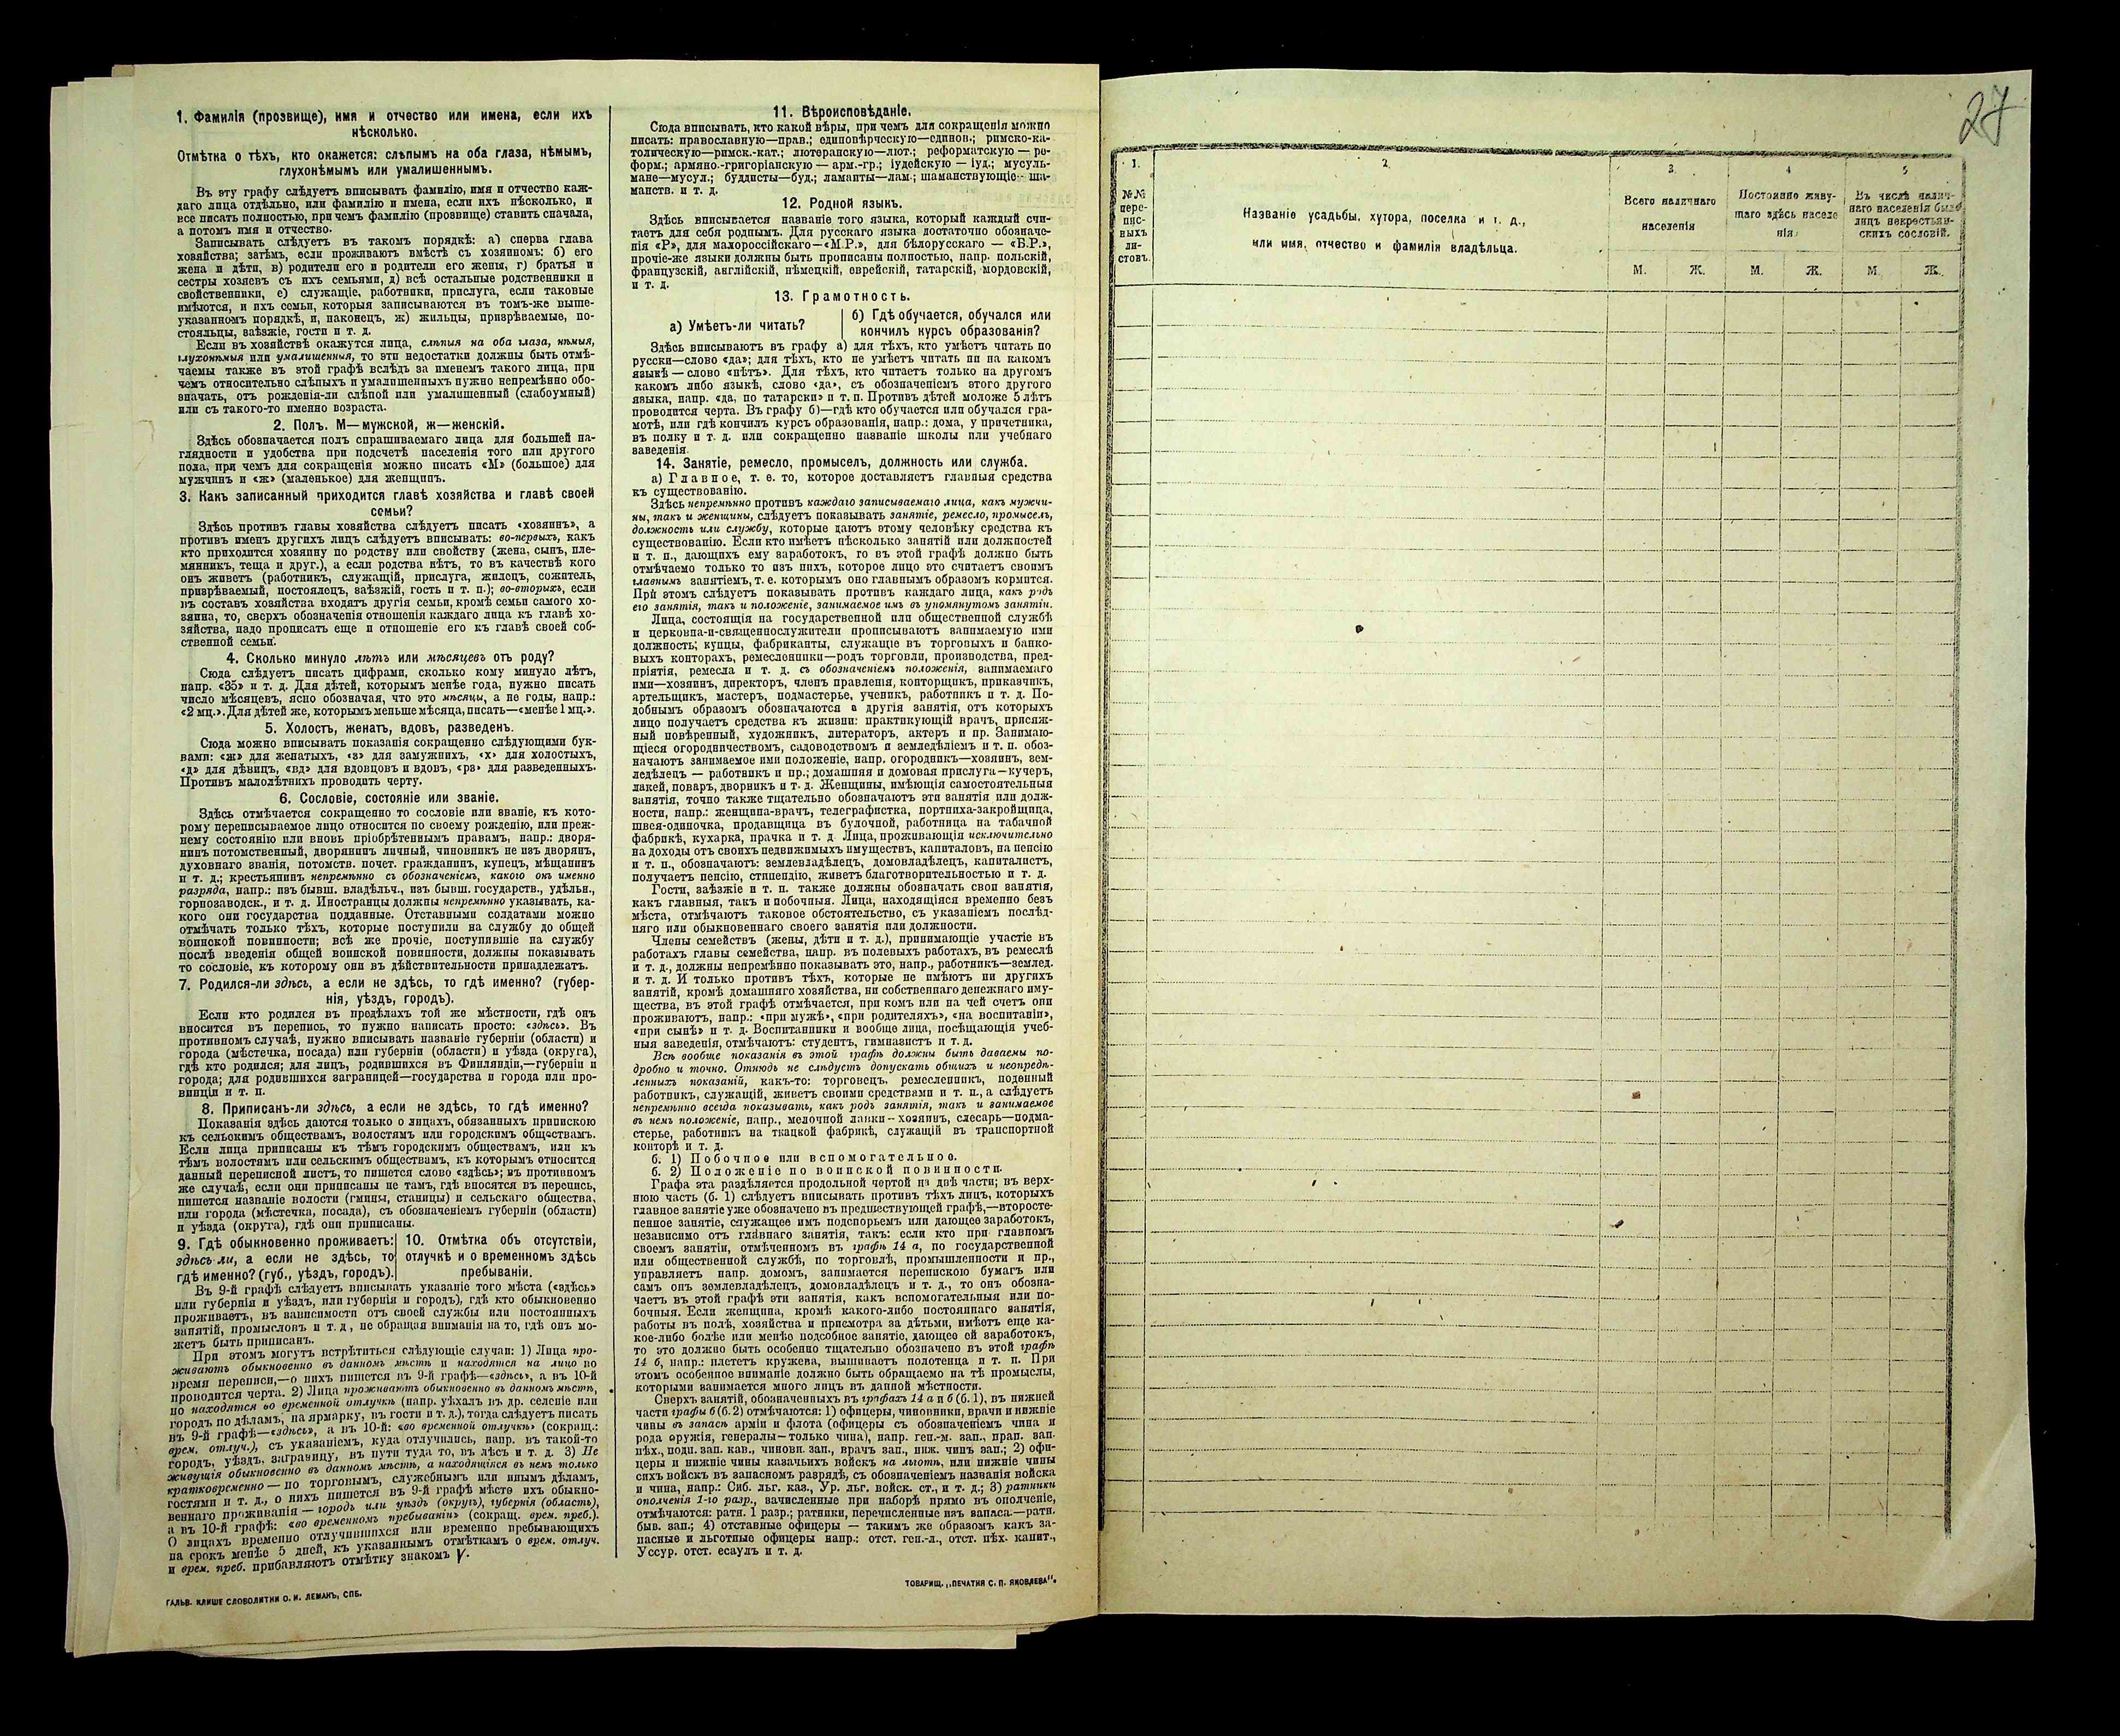 1. Фамилія (прозвище), имя и отчество или имена, если ихъ
нѣсколько.
Отмѣтка о тѣхъ, кто окажется: слѣпымъ на оба глаза, нѣмымъ,
глухонѣмымъ или умалишеннымъ.
Въ эту графу слѣдуетъ вписывать фамилію, имя и отчество каж-
даго лица отдѣльно, или фамилію и имена, если ихъ нѣсколько, и
все писать полностью, при чемъ фамилію (прозвище) ставить сначала,
а потомъ имя и отчество.
Записывать слѣдуетъ въ такомъ порядкѣ: а) сперва глава
хозяйства; затѣмъ, если проживаютъ вмѣстѣ съ хозяиномъ: б) его
жена и дѣти, в) родители его и родители его жены, г) братья и
сестры хозяевъ съ ихъ семьями, д) всѣ остальные родственники и
свойственники, е) служащіе, работники, прислуга, если таковые
имѣются, и ихъ семьи, которыя записываются въ томъ-же выше-
указанномъ порядкѣ, и, наконецъ, ж) жильцы, призрѣваемые, по-
стояльцы, заѣзжіе, гости и т. д.
Если въ хозяйствѣ окажутся лица, слѣпыя на оба глаза, нѣмыя,
глухонѣмыя или умалишенныя, то эти недостатки должны быть отмѣ-
чаемы также въ этой графѣ вслѣдъ за именемъ такого лица, при
чемъ относительно слѣпыхъ и умалишенныхъ нужно непремѣнно обо-
значать, отъ рожденія-ли слѣпой или умалишенный (слабоумный)
или съ такого-то именно возраста.
2. Полъ. М—мужской, ж—женскій.
Здѣсь обозначается полъ спрашиваемаго лица для большей на-
глядности и удобства при подсчетѣ населенія того или другого
пола, при чемъ для сокращенія можно писать «М» (большое) для
мужчинъ и «ж» (маленькое) для женщинъ.
3. Какъ записанный приходится главѣ хозяйства и главѣ своей
семьи?
Здѣсь противъ главы хозяйства слѣдуетъ писать «хозяинъ», а
противъ именъ другихъ лицъ слѣдуетъ вписывать: во-первыхъ, какъ
кто приходится хозяину по родству или свойству (жена, сынъ, пле-
мянникъ, теща и друг.), а если родства нѣтъ, то въ качествѣ кого
онъ живетъ (работникъ, служащій, прислуга, жилецъ, сожитель,
призрѣваемый, постоялецъ, заѣзжій, гость и т. п.); во-вторыхъ, если
въ составъ хозяйства входятъ другія семьи, кромѣ семьи самого хо-
зяина, то, сверхъ обозначенія отношенія каждаго лица къ главѣ хо-
зяйства, надо прописать еще и отношеніе его къ главѣ своей соб-
ственной семьи.
4. Сколько минуло лѣтъ или мѣсяцевъ отъ роду?
Сюда слѣдуетъ писать цифрами, сколько кому минуло лѣтъ,
напр. «35» и т. д. Для дѣтей, которымъ менѣе года, нужно писать
число мѣсяцевъ, ясно обозначая, что это мѣсяцы, а не годы, напр.:
«2 мц.». Для дѣтей же, которымъ меньше мѣсяца, писать—«менѣе 1 мц.».
5. Холостъ, женатъ, вдовъ, разведенъ.
Сюда можно вписывать показанія сокращенно слѣдующими бук-
вами: «ж» для женатыхъ, «з» для замужнихъ, «х» для холостыхъ,
«д» для дѣвицъ, «вд» для вдовцовъ и вдовъ, «рз» для разведенныхъ.
Противъ малолѣтнихъ проводить черту.
6. Сословіе, состояніе или званіе.
Здѣсь отмѣчается сокращенно то сословіе или званіе, къ кото-
рому переписываемое лицо относится по своему рожденію, или преж-
нему состоянію или вновь пріобрѣтеннымъ правамъ, напр.: дворя-
нинъ потомственный, дворянинъ личный, чиновникъ не изъ дворянъ,
духовнаго званія, потомств. почет. гражданинъ, купецъ, мѣщанинъ
и т. д.; крестьянинъ непремѣнно съ обозначеніемъ, какого онъ именно
разряда, напр.: изъ бывш. владѣльч., изъ бывш. государств., удѣльн.,
горнозаводск., и т. д. Иностранцы должны непремѣнно указывать, ка-
кого они государства подданные. Отставными солдатами можно
отмѣчать только тѣхъ, которые поступили на службу до общей
воинской повинности; всѣ же прочіе, поступившіе на службу
послѣ введенія общей воинской повинности, должны показывать
то сословіе, къ которому они въ дѣйствительности принадлежатъ.
7. Родился-ли здѣсь, а если не здѣсь, то гдѣ именно? (губер-
нія, уѣздъ, городъ).
Если кто родился въ предѣлахъ той же мѣстности, гдѣ онъ
вносится въ перепись, то нужно написать просто: «здѣсь». Въ
противномъ случаѣ, нужно вписывать названіе губерніи (области) и
города (мѣстечка, посада) или губерніи (области) и уѣзда (округа),
гдѣ кто родился; для лицъ, родившихся въ Финляндіи,—губерніи и
города; для родившихся заграницей—государства и города или про-
винціи и т. п.
8. Приписанъ-ли здѣсь, а если не здѣсь, то гдѣ именно?
Показанія здѣсь даются только о лицахъ, обязанныхъ припискою
къ сельскимъ обществамъ, волостямъ или городскимъ обществамъ.
Если лица приписаны къ тѣмъ городскимъ обществамъ, или къ
тѣмъ волостямъ или сельскимъ обществамъ, къ которымъ относится
данный переписной листъ, то пишется слово «здѣсь»; въ противномъ
же случаѣ, если они приписаны не тамъ, гдѣ вносятся въ перепись,
пишется названіе волости (гмины, станицы) и сельскаго общества,
или города (мѣстечка, посада), съ обозначеніемъ губерніи (области)
и уѣзда (округа), гдѣ они приписаны.
9. Гдѣ обыкновенно проживаетъ:
здѣсь-ли, а если не здѣсь, то
гдѣ именно? (губ., уѣздъ, городъ).
10. Отмѣтка объ отсутствіи,
отлучкѣ и о временномъ здѣсь
пребываніи.
Въ 9-й графѣ слѣдуетъ вписывать указаніе того мѣста («здѣсь»
или губернія и уѣздъ, или губернія и городъ), гдѣ кто обыкновенно
проживаетъ, въ зависимости отъ своей службы или постоянныхъ
занятій, промысловъ и т. д, не обращая вниманія на то, гдѣ онъ мо-
жетъ быть приписанъ.
При этомъ могутъ встрѣтиться слѣдующіе случаи: 1) Лица про-
живаютъ обыкновенно въ данномъ мѣстѣ и находятся на лицо во
время переписи,—о нихъ пишется въ 9-й графѣ—«здѣсь», а въ 10-й
проводится черта. 2) Лица проживаютъ обыкновенно въ данномъ мѣстѣ,
но находятся во временной отлучкѣ (напр. уѣхалъ въ др. селеніе или
городъ по дѣламъ, на ярмарку, въ гости и т. д.), тогда слѣдуетъ писать
въ 9-й графѣ—«здѣсь», а въ 10-й: «во временной отлучкѣ» (сокращ.:
врем. отлуч.), съ указаніемъ, куда отлучились, напр. въ такой-то
городъ, уѣздъ, заграницу, въ пути туда то, въ лѣсъ и т. д. 3) Не
живущія обыкновенно въ данномъ мѣстѣ, а находящіяся въ немъ только
кратковременно — по торговымъ, служебнымъ или инымъ дѣламъ,
гостями и т. д., о нихъ пишется въ 9-й графѣ мѣсто ихъ обыкно-
веннаго проживанія — городъ или уѣздъ (округъ), губернія (область),
а въ 10-й графѣ: «во временномъ пребываніи» (сокращ. врем. преб.).
О лицахъ временно отлучившихся или временно пребывающихъ
на срокъ менѣе 5 дней, къ указаннымъ отмѣткамъ о врем. отлуч.
и врем. преб. прибавляютъ отмѣтку знакомъ V.
ГАЛЬВ. КЛИШЕ СЛОВОЛИТНИ О. И. ЛЕМАНЪ, СПБ.
11. Вѣроисповѣданіе.
Сюда вписывать, кто какой вѣры, при чемъ для сокращенія можно
писать: православную—прав.; единовѣрческую—единов.; римско-ка-
толическую—римск.-кат.; лютеранскую—лют.; реформатскую — ре-
форм.; армяно.-григоріанскую — арм.-гр.; іудейскую — іуд.; мусуль-
мане—мусул.; буддисты—буд.; ламаиты—лам.; шаманствующіе—ша-
манств. и т. д.
12. Родной языкъ.
Здѣсь вписывается названіе того языка, который каждый счи-
таетъ для себя роднымъ. Для русскаго языка достаточно обозначе-
нія «Р», для малороссійскаго—«М.Р.», для бѣлорусскаго — «Б.Р.»,
прочіе-же языки должны быть прописаны полностью, напр. польскій,
французскій, англійскій, нѣмецкій, еврейскій, татарскій, мордовскій,
и т. д.
13. Грамотность.
а) Умѣетъ-ли читать?
б) Гдѣ обучается, обучался или
кончилъ курсъ образованія?
Здѣсь вписываютъ въ графу а) для тѣхъ, кто умѣетъ читать по
русски—слово «да»; для тѣхъ, кто не умѣетъ читать ни на какомъ
языкѣ — слово «нѣтъ». Для тѣхъ, кто читаетъ только на другомъ
какомъ либо языкѣ, слово «да», съ обозначеніемъ этого другого
языка, напр. «да, по татарски» и т. п. Противъ дѣтей моложе 5 лѣтъ
проводится черта. Въ графу б)—гдѣ кто обучается или обучался гра-
мотѣ, или гдѣ кончилъ курсъ образованія, напр.: дома, у причетника,
въ полку и т. д. или сокращенно названіе школы или учебнаго
заведенія.
14. Занятіе, ремесло, промыселъ, должность или служба.
а) Главное, т. е. то, которое доставляетъ главныя средства
къ существованію.
Здѣсь непремѣнно противъ каждаго записываемаго лица, какъ мужчи-
ны, такъ и женщины, слѣдуетъ показывать занятіе, ремесло, промыселъ,
должность или службу, которые даютъ этому человѣку средства къ
существованію. Если кто имѣетъ нѣсколько занятій или должностей
и т. п., дающихъ ему заработокъ, то въ этой графѣ должно быть
отмѣчаемо только то изъ нихъ, которое лицо это считаетъ своимъ
главнымъ занятіемъ, т. е. которымъ оно главнымъ образомъ кормится.
При этомъ слѣдуетъ показывать противъ каждаго лица, какъ родъ
его занятія, такъ и положеніе, занимаемое имъ въ упомянутомъ занятіи.
Лица, состоящія на государственной или общественной службѣ
и церковно-и-священнослужители прописываютъ занимаемую ими
должность; купцы, фабриканты, служащіе въ торговыхъ и банко-
выхъ конторахъ, ремесленники—родъ торговли, производства, пред-
пріятія, ремесла и т. д. съ обозначеніемъ положенія, занимаемаго
ими—хозяинъ, директоръ, членъ правленія, конторщикъ, приказчикъ,
артельщикъ, мастеръ, подмастерье, ученикъ, работникъ и т. д. По-
добнымъ образомъ обозначаются и другія занятія, отъ которыхъ
лицо получаетъ средства къ жизни: практикующій врачъ, присяж-
ный повѣренный, художникъ, литераторъ, актеръ и пр. Занимаю-
щіеся огородничествомъ, садоводствомъ и земледѣліемъ и т. п. обоз-
начаютъ занимаемое ими положеніе, напр. огородникъ—хозяинъ, зем-
ледѣлецъ — работникъ и пр.; домашняя и домовая прислуга—кучеръ,
лакей, поваръ, дворникъ и т. д. Женщины, имѣющія самостоятельныя
занятія, точно также тщательно обозначаютъ эти занятія или долж-
ности, напр.: женщина-врачъ, телеграфистка, портниха-закройщица,
швея-одиночка, продавщица въ булочной, работница на табачной
фабрикѣ, кухарка, прачка и т. д. Лица, проживающія исключительно
на доходы отъ своихъ недвижимыхъ имуществъ, капиталовъ, на пенсію
и т. п., обозначаютъ: землевладѣлецъ, домовладѣлецъ, капиталистъ,
получаетъ пенсію, стипендію, живетъ благотворительностью и т. д.
Гости, заѣзжіе и т. п. также должны обозначать свои занятія,
какъ главныя, такъ и побочныя. Лица, находящіяся временно безъ
мѣста, отмѣчаютъ таковое обстоятельство, съ указаніемъ послѣд-
няго или обыкновеннаго своего занятія или должности.
Члены семействъ (жены, дѣти и т. д.), принимающіе участіе въ
работахъ главы семейства, напр. въ полевыхъ работахъ, въ ремеслѣ
и т. д., должны непремѣнно показывать это, напр., работникъ—землед.
и т. д. И только противъ тѣхъ, которые не имѣютъ ни другихъ
занятій, кромѣ домашняго хозяйства, ни собственнаго денежнаго иму-
щества, въ этой графѣ отмѣчается, при комъ или на чей счетъ они
проживаютъ, напр.: «при мужѣ», «при родителяхъ», «на воспитаніи»,
«при сынѣ» и т. д. Воспитанники и вообще лица, посѣщающія учеб-
ныя заведенія, отмѣчаютъ: студентъ, гимназистъ и т. д.
Всѣ вообще показанія въ этой графѣ должны быть даваемы по-
дробно и точно. Отнюдь не слѣдуетъ допускать общихъ и неопредѣ-
ленныхъ показаній, какъ-то: торговецъ, ремесленникъ, поденный
работникъ, служащій, живетъ своими средствами и т. п., а слѣдуетъ
непремѣнно всегда показывать, какъ родъ занятія, такъ и занимаемое
въ немъ положеніе, напр., мелочной лавки—хозяинъ, слесарь—подма-
стерье, работникъ на ткацкой фабрикѣ, служащій въ транспортной
конторѣ и т. д.
б. 1) Побочное или вспомогательное.
б. 2) Положеніе по воинской повинности.
Графа эта раздѣляется продольной чертой на двѣ части; въ верх-
нюю часть (б. 1) слѣдуетъ вписывать противъ тѣхъ лицъ, которыхъ
главное занятіе уже обозначено въ предшествующей графѣ,—второсте-
пенное занятіе, служащее имъ подспорьемъ или дающее заработокъ,
независимо отъ главнаго занятія, такъ: если кто при главномъ
своемъ занятіи, отмѣченномъ въ графѣ 14 а, по государственной
или общественной службѣ, по торговлѣ, промышленности и пр.,
управляетъ напр. домомъ, занимается перепискою бумагъ или
самъ онъ землевладѣлецъ, домовладѣлецъ и т. д., то онъ обозна-
чаетъ въ этой графѣ эти занятія, какъ вспомогательныя или по-
бочныя. Если женщина, кромѣ какого-либо постояннаго занятія,
работы въ полѣ, хозяйства и присмотра за дѣтьми, имѣетъ еще ка-
кое-либо болѣе или менѣе подсобное занятіе, дающее ей заработокъ,
то это должно быть особенно тщательно обозначено въ этой графѣ
14 б, напр.: плететъ кружева, вышиваетъ полотенца и т. п. При
этомъ особенное вниманіе должно быть обращаемо на тѣ промыслы,
которыми занимается много лицъ въ данной мѣстности.
Сверхъ занятій, обозначенныхъ въ графахъ 14 а и б (б. 1), въ нижней
части графы б (б. 2) отмѣчаются: 1) офицеры, чиновники, врачи и нижніе
чины въ запасѣ арміи и флота (офицеры съ обозначеніемъ чина и
рода оружія, генералы—только чина), напр. ген.-м. зап., прап. зап.
пѣх., подп. зап. кав., чиновн. зап., врачъ зап., ниж. чинъ зап.; 2) офи-
церы и нижніе чины казачьихъ войскъ на льготѣ, или нижніе чины
сихъ войскъ въ запасномъ разрядѣ, съ обозначеніемъ названія войска
и чина, напр.: Сиб. льг. каз., Ур. льг. войск. ст., и т. д.; 3) ратники
ополченія 1-го разр., зачисленные при наборѣ прямо въ ополченіе,
отмѣчаются: ратн. 1 разр.; ратники, перечисленные изъ запаса.—ратн.
быв. зап.; 4) отставные офицеры — такимъ же образомъ какъ за-
пасные и льготные офицеры напр.: отст. ген.-л., отст. пѣх. капит.,
Уссур. отст. есаулъ и т. д.
ТОВАРИЩ. „ПЕЧАТНЯ С. П. ЯКОВЛЕВА".
27
1.
№№
пере-
пис-
ныхъ
ли-
стовъ.
2.
Названіе усадьбы, хутора, поселка и т. д.,
или имя, отчество и фамилія владѣльца.
3.
Всего наличнаго
населенія
М. Ж.
4
Постоянно живу-
щаго здѣсь населе
нія.
М. Ж.
5
Въ числѣ налич-
наго населенія было
лицъ некрестьян-
скихъ сословій.
М. Ж.